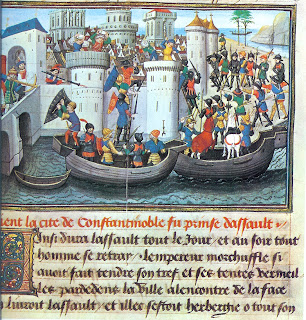 ent la cite de Constantinoble fu prinse dassault
Insi dura lassault tout le Jour et au soir tout
homme se retray lempereur morchuffle si
auoit fait tendre son tref et ses tentes vermeil
les par dedens la ville alencontre de la face
liuroit lassault et illec sestoit herbergie o tout son